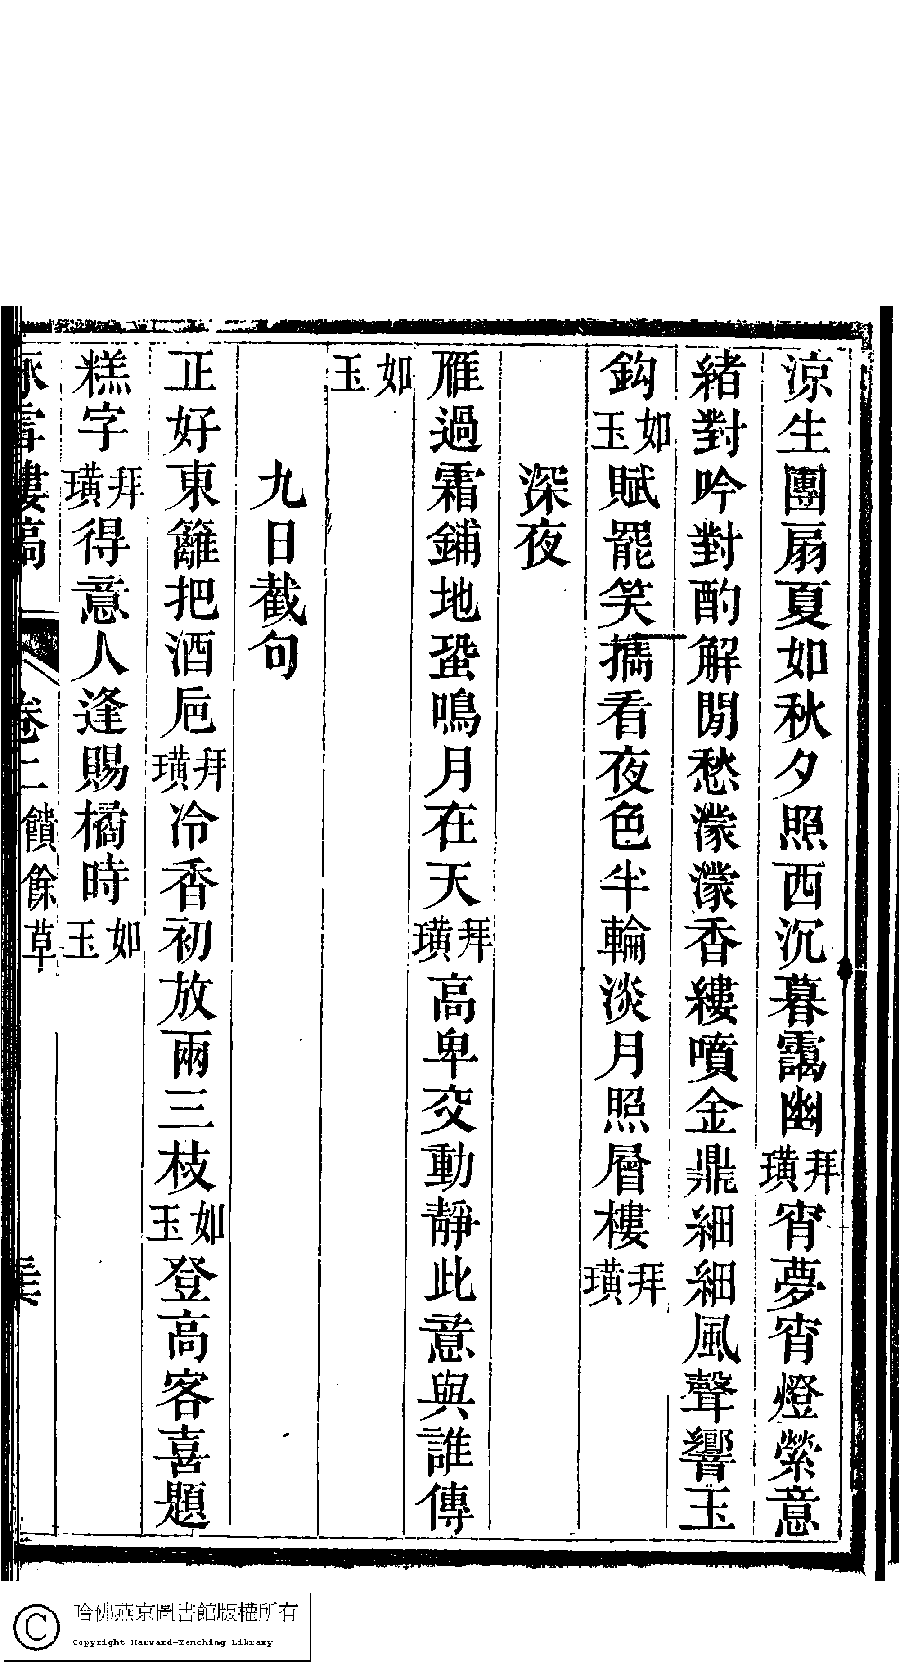 涼生團扇夏如秋夕照西沉暮靄幽拜璜宵夢宵燈縈意
緒對吟對酌解閒愁濛濛香縷噴金鼎細細風聲響玉
鈎如玉賦罷笑攜看夜色半輪淡月照層樓拜璜
深夜
雁過霜鋪地蛩鳴月在天拜璜高卑交動靜此意與誰傳
如玉
九日截句
正好東籬把酒卮拜璜冷香初放兩三枝如玉登高客喜題
糕字拜璜得意人逢賜橘時如玉
卷二 饋餘草
哈佛燕京圖書館版權所有
Copyright Harvard-Yenching Library